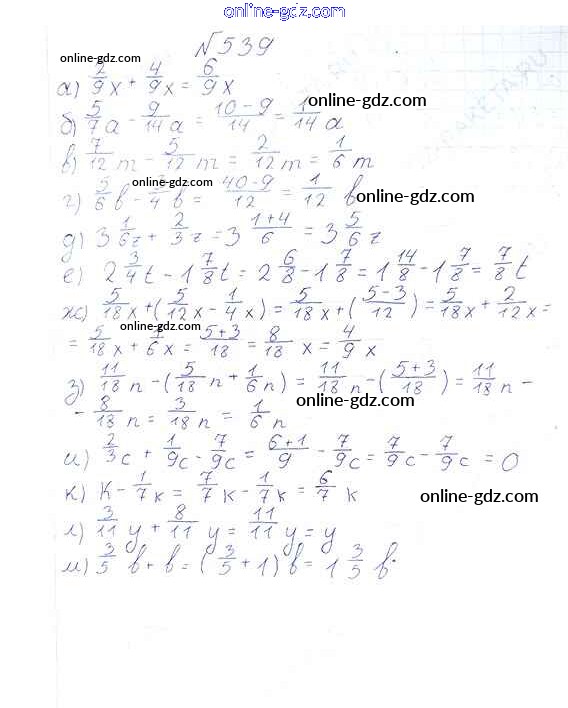 online-gdz.com
№539
online-gdz.com
а) 2/9 x + 4/9 x = 6/9 x
online-gdz.com
б) 5/7 a - 9/14 a = (10-9)/14 = 1/14 a
online-gdz.com
в) 7/12 m - 5/12 m = 2/12 m = 1/6 m
online-gdz.com
г) 5/6 b - 3/4 b = (40-9)/12 = 1/12 b
online-gdz.com
д) 3 1/6 z + 2/3 z = 3 (1+4)/6 = 3 5/6 z
е) 2 3/4 t - 1 7/8 t = 2 6/8 - 1 7/8 = 1 14/8 - 1 7/8 = 7/8 t
online-gdz.com
ж) 5/18 x + (5/12 x - 1/4 x) = 5/18 x + ((5-3)/12) = 5/18 x + 2/12 x =
online-gdz.com
= 5/18 x + 1/6 x = (5+3)/18 = 8/18 x = 4/9 x
online-gdz.com
з) 11/18 n - (5/18 n + 1/6 n) = 11/18 n - ((5+3)/18) = 11/18 n -
online-gdz.com
- 8/18 n = 3/18 n = 1/6 n
online-gdz.com
и) 2/3 c + 1/9 c - 7/9 c = (6+1)/9 - 7/9 c = 7/9 c - 7/9 c = 0
к) k - 1/7 k = 7/7 k - 1/7 k = 6/7 k
online-gdz.com
л) 3/11 y + 8/11 y = 11/11 y = y
online-gdz.com
м) 3/5 b + b = (3/5 + 1) b = 1 3/5 b.